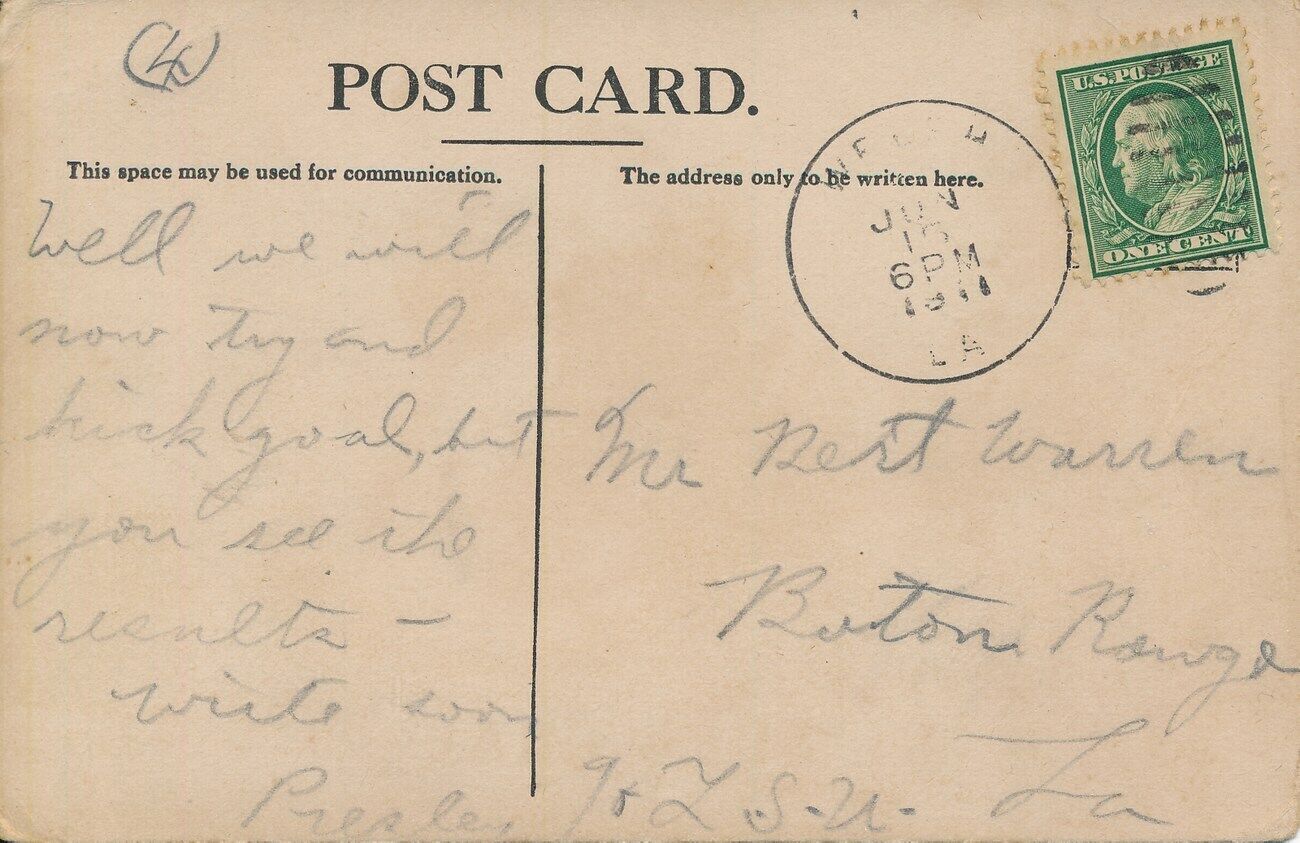 (4)
POST CARD.
This space may be used for communication.
The address only to be written here.
U.S. POSTAGE
ONE CENT
WELSH
JUN
6 PM
1911
LA
Well we will
now try and
kick goal, but
you see the
results –
write soon
Presley
Mr Bert Warren
Baton Rouge
La
% L.S.U.